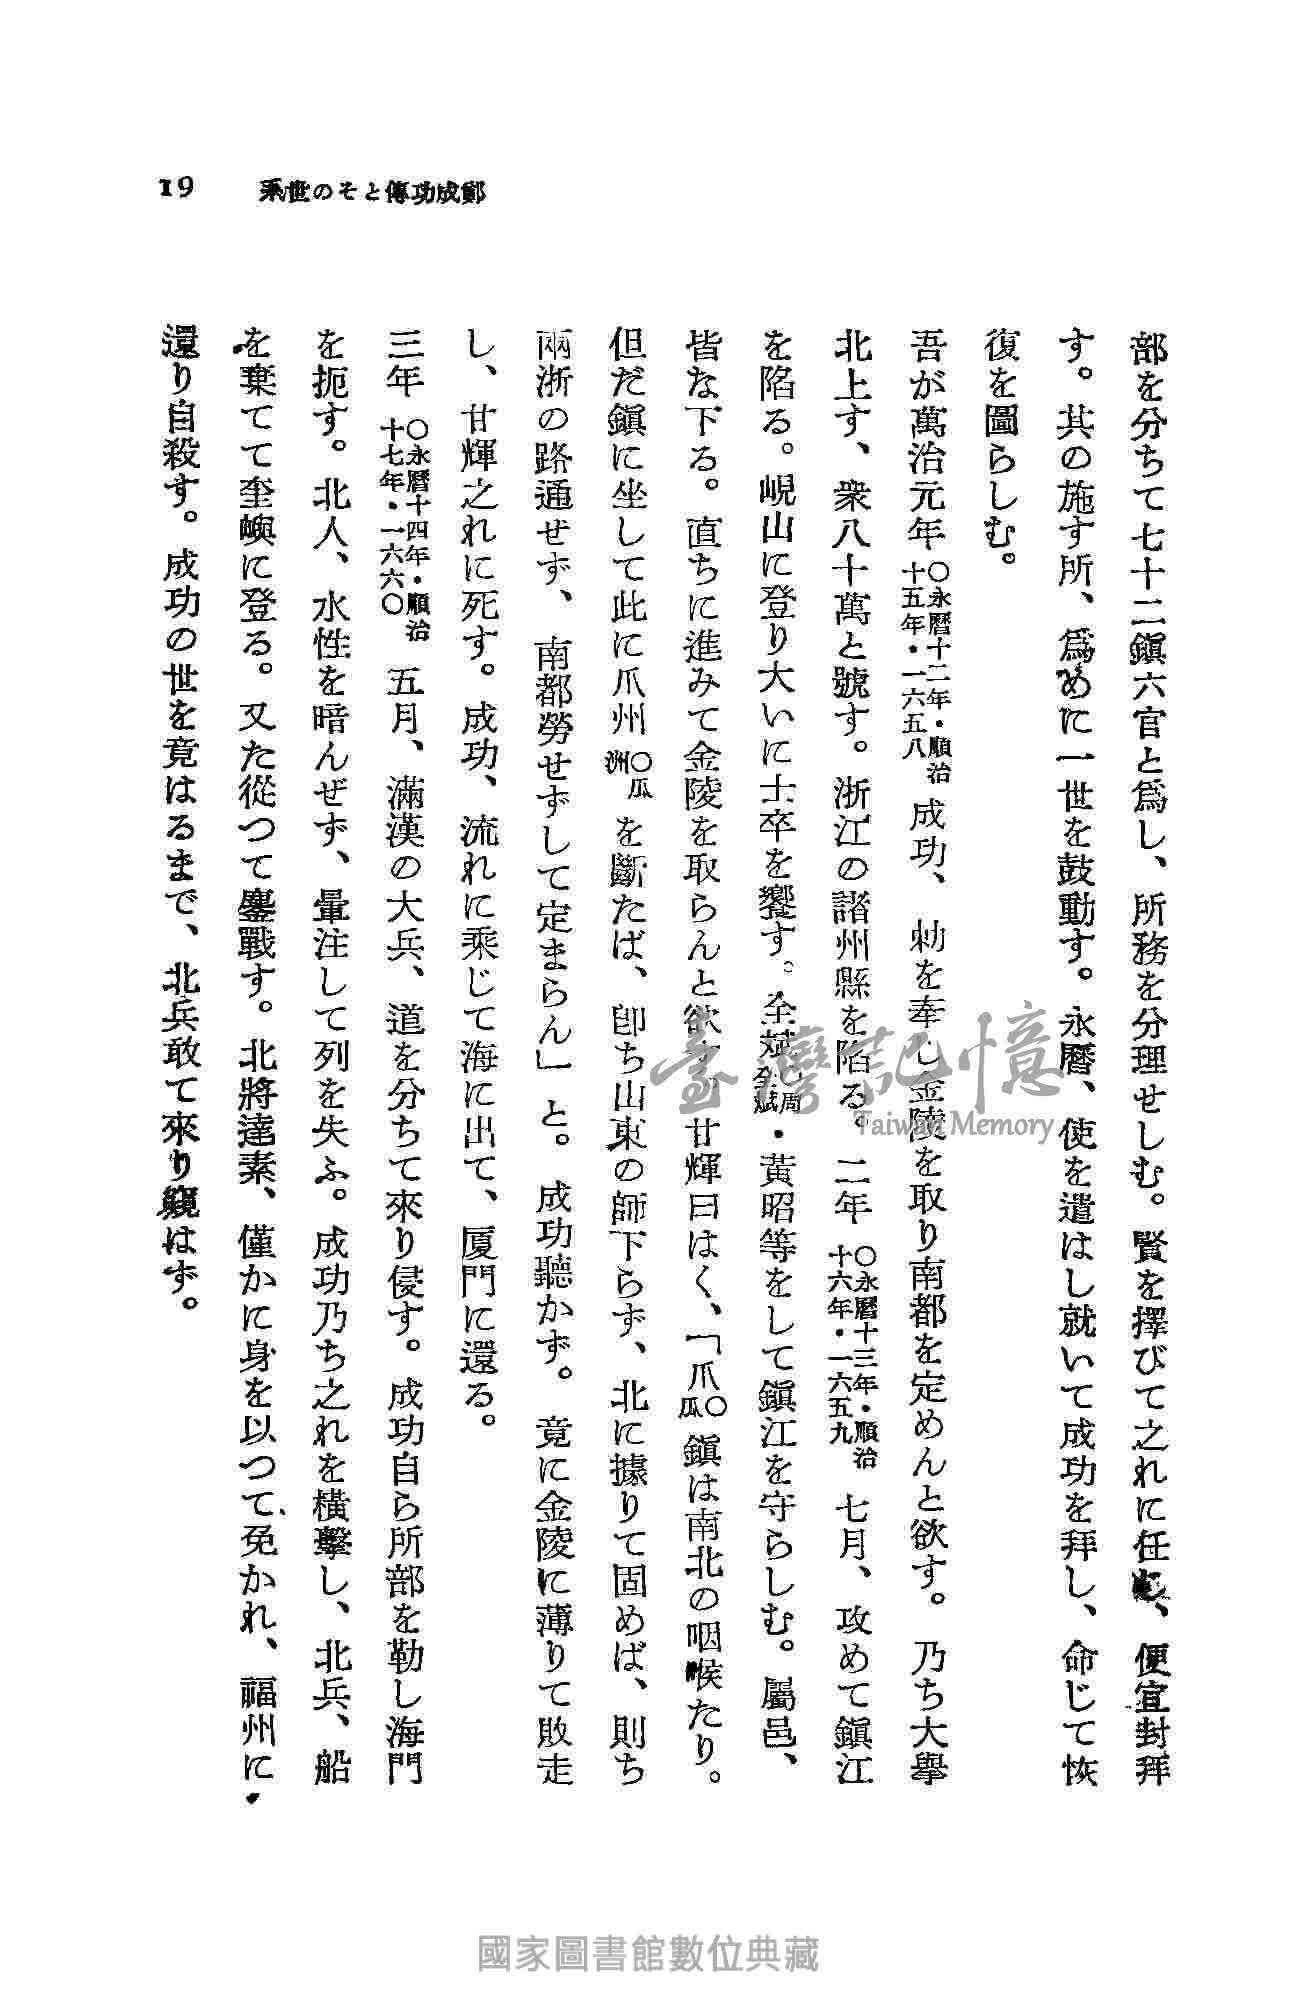 19
鄭成功傳とその世系
部を分ちて七十二鎭六官と爲し、所務を分理せしむ。賢を擇びて之れに任じ、便宜封拜
す。其の施す所、爲めに一世を鼓動す。永曆、使を遣はし就いて成功を拜し、命じて恢
復を圖らしむ。
吾が萬治元年 〇永曆十二年・順治十五年・一六五八 成功、勅を奉じ金陵を取り南都を定めんと欲す。乃ち大擧
北上す、衆八十萬と號す。浙江の諸州縣を陷る。二年 〇永曆十三年・順治十六年・一六五九 七月、攻めて鎭江
を陷る。峴山に登り大いに士卒を饗す。全斌〇周全斌・黃昭等をして鎭江を守らしむ。屬邑、
皆な下る。直ちに進みて金陵を取らんと欲す。甘輝曰はく、「爪〇瓜鎭は南北の咽喉たり。
但だ鎭に坐して此に爪州〇瓜洲を斷たば、卽ち山東の師下らず、北に據りて固めば、則ち
兩浙の路通せず、南都勞せずして定まらん」と。成功聽かず。竟に金陵に薄りて敗走
し、甘輝之れに死す。成功、流れに乘じて海に出て、厦門に還る。
三年 〇永曆十四年・順治十七年・一六六〇 五月、滿漢の大兵、道を分ちて來り侵す。成功自ら所部を勒し海門
を扼す。北人、水性を暗んぜず、暈注して列を失ふ。成功乃ち之れを橫擊し、北兵、船
を棄てて奎嶼に登る。又た從つて鏖戰す。北將達素、僅かに身を以つて免かれ、福州に
還り自殺す。成功の世を竟はるまで、北兵敢て來り窺はず。
臺灣記憶
Taiwan Memory
國家圖書館數位典藏